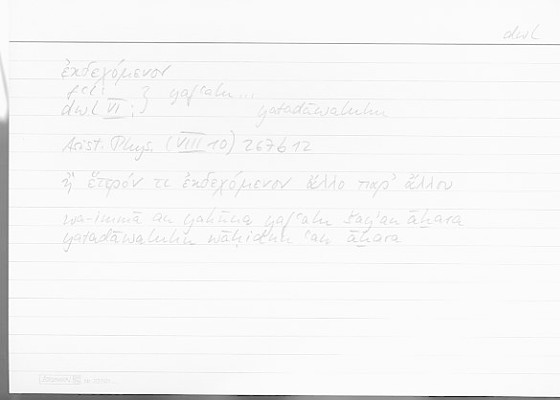 dwl
ἐκδεχόμενον
fʿl
dwl VI ; } yafʿalu...
yatadāwaluhu
Arist. Phys. (VIII 10) 267b12
ἢ ἕτερόν τι ἐκδεχόμενον ἄλλο παρ' ἄλλου
wa-immā an yakūna yafʿalu šayʾan āḫara
yatadāwaluhu wāḥidun ʿan āḫara